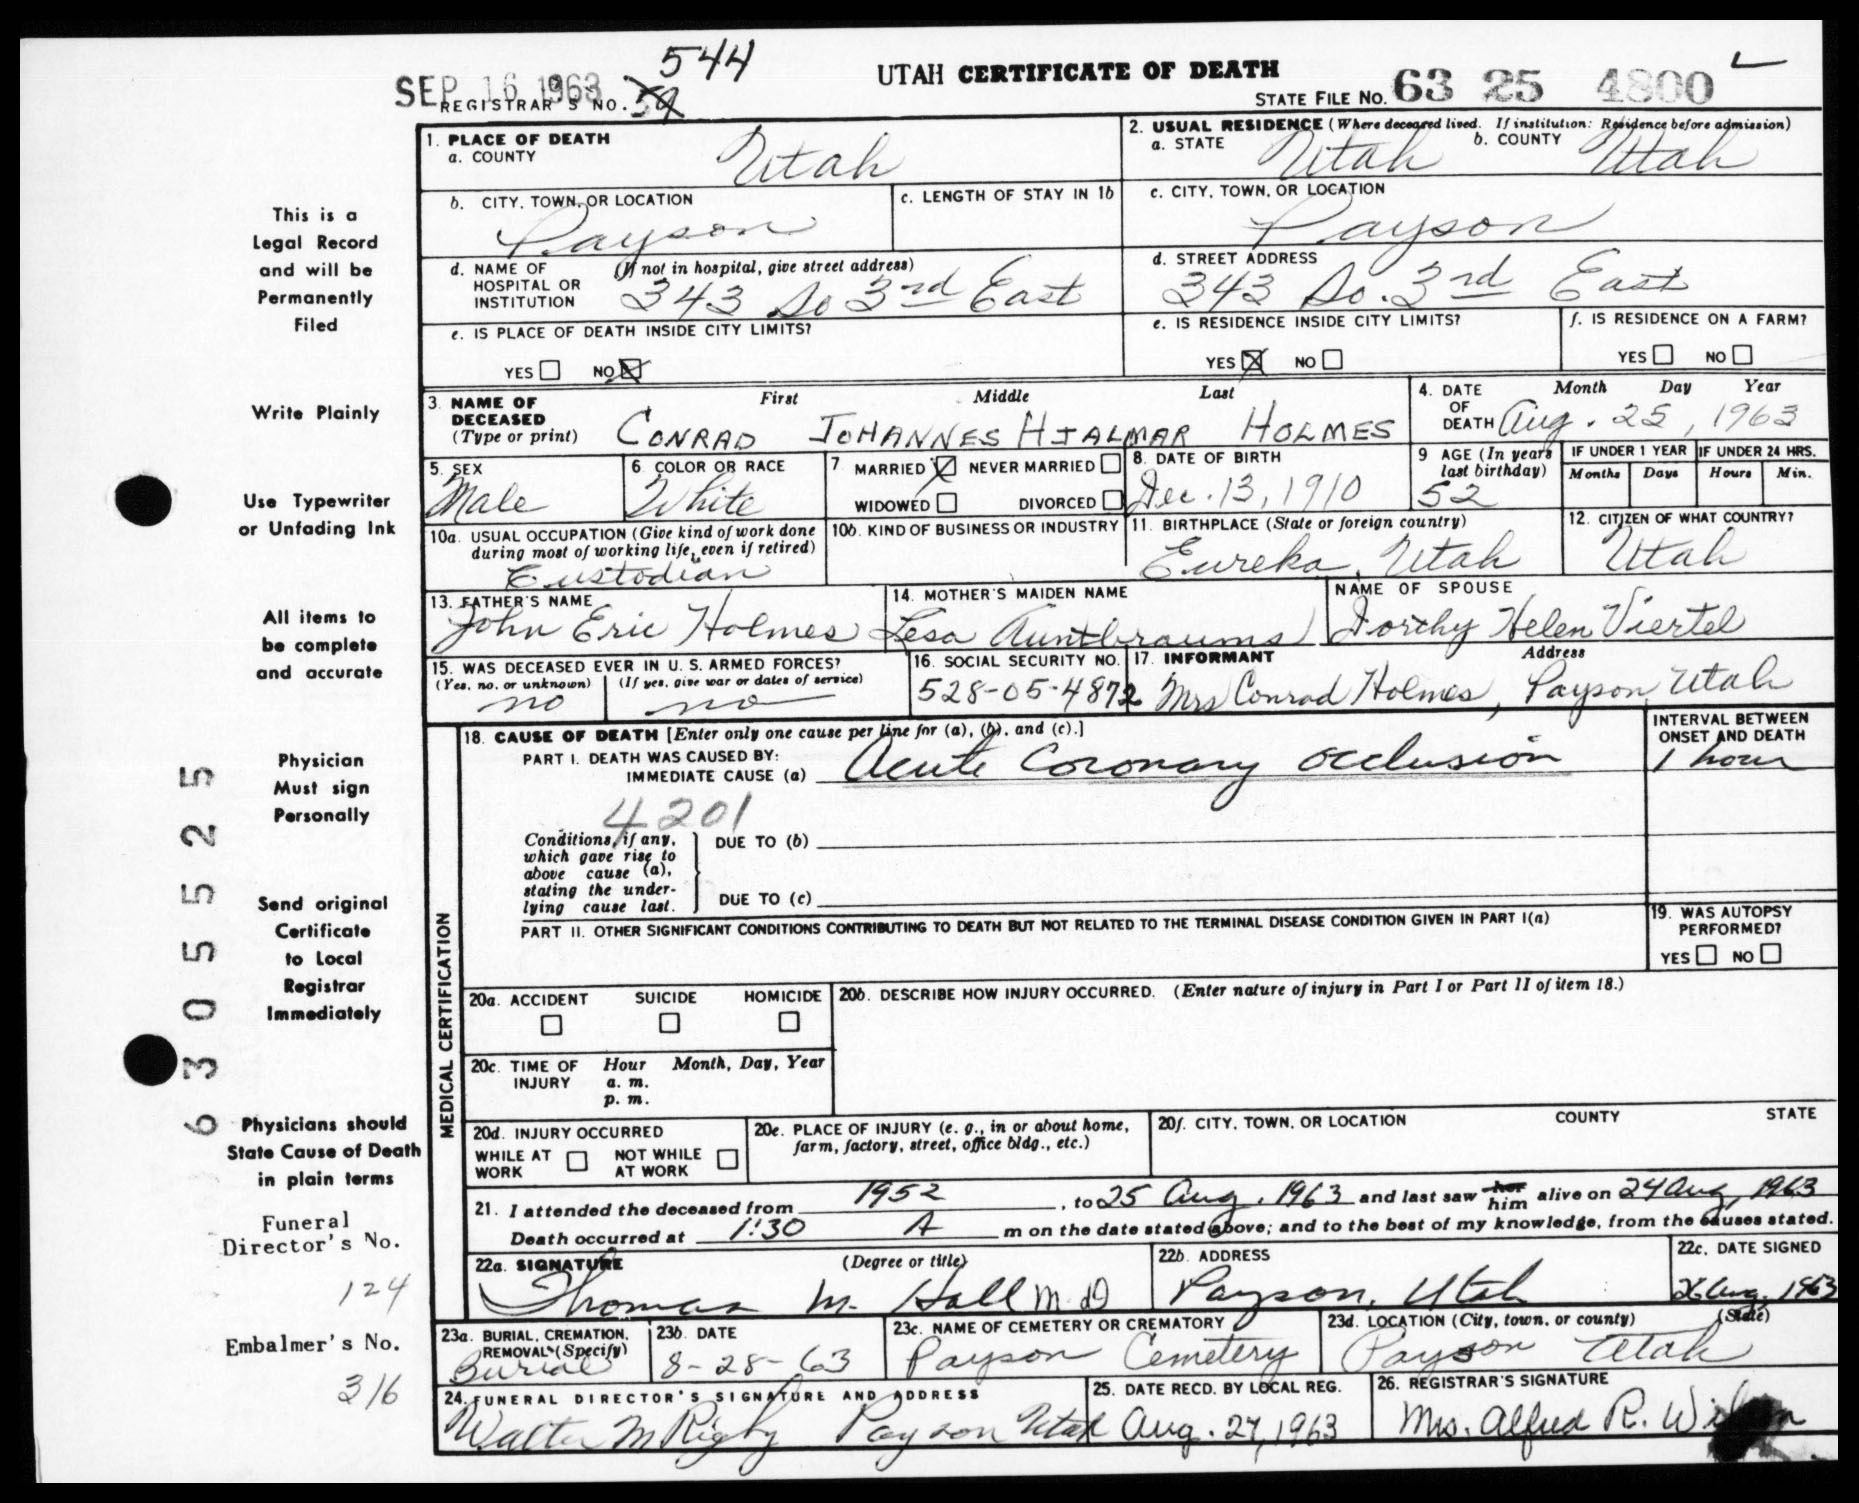 SEP 16 1963
544
UTAH CERTIFICATE OF DEATH
REGISTRAR'S NO. 59
STATE FILE NO. 63 25 4800
1. PLACE OF DEATH
a. COUNTY Utah
2. USUAL RESIDENCE (Where deceased lived. If institution: Residence before admission)
a. STATE Utah b. COUNTY Utah
b. CITY, TOWN, OR LOCATION Payson
c. LENGTH OF STAY IN 1b
c. CITY, TOWN, OR LOCATION Payson
d. NAME OF HOSPITAL OR INSTITUTION (If not in hospital, give street address) 343 So 3rd East
d. STREET ADDRESS 343 So. 3rd East
e. IS PLACE OF DEATH INSIDE CITY LIMITS?
YES NO
e. IS RESIDENCE INSIDE CITY LIMITS?
YES NO
f. IS RESIDENCE ON A FARM?
YES NO
3. NAME OF DECEASED (Type or print)
First Middle Last
CONRAD JOHANNES HJALMAR HOLMES
4. DATE OF DEATH Month Day Year
Aug. 25, 1963
5. SEX Male
6. COLOR OR RACE White
7. MARRIED NEVER MARRIED
WIDOWED DIVORCED
8. DATE OF BIRTH Dec. 13, 1910
9 AGE (In years last birthday) 52
IF UNDER 1 YEAR Months Days
IF UNDER 24 HRS. Hours Min.
10a. USUAL OCCUPATION (Give kind of work done during most of working life, even if retired) Custodian
10b. KIND OF BUSINESS OR INDUSTRY
11. BIRTHPLACE (State or foreign country) Eureka, Utah
12. CITIZEN OF WHAT COUNTRY? Utah
13. FATHER'S NAME John Eric Holmes
14. MOTHER'S MAIDEN NAME Lesa
NAME OF SPOUSE Dorthy Helen Viertel
15. WAS DECEASED EVER IN U. S. ARMED FORCES?
(Yes, no, or unknown) no (If yes, give war or dates of service) no
16. SOCIAL SECURITY NO. 528-05-4872
17. INFORMANT Address
Mrs Conrad Holmes, Payson Utah
MEDICAL CERTIFICATION
18. CAUSE OF DEATH [Enter only one cause per line for (a), (b), and (c).]
INTERVAL BETWEEN ONSET AND DEATH
PART I. DEATH WAS CAUSED BY:
IMMEDIATE CAUSE (a) Acute Coronary Occlusion 1 hour
4201
Conditions, if any, which gave rise to above cause (a), stating the underlying cause last.
DUE TO (b)
DUE TO (c)
PART II. OTHER SIGNIFICANT CONDITIONS CONTRIBUTING TO DEATH BUT NOT RELATED TO THE TERMINAL DISEASE CONDITION GIVEN IN PART I(a)
19. WAS AUTOPSY PERFORMED?
YES NO
20a. ACCIDENT SUICIDE HOMICIDE
20b. DESCRIBE HOW INJURY OCCURRED. (Enter nature of injury in Part I or Part II of item 18.)
20c. TIME OF INJURY Hour Month, Day, Year
a. m.
p. m.
20d. INJURY OCCURRED
WHILE AT WORK NOT WHILE AT WORK
20e. PLACE OF INJURY (e. g., in or about home, farm, factory, street, office bldg., etc.)
20f. CITY, TOWN, OR LOCATION COUNTY STATE
21. I attended the deceased from 1952, to 25 Aug. 1963 and last saw her him alive on 24 Aug, 1963
Death occurred at 1:30 A m on the date stated above; and to the best of my knowledge, from the causes stated.
22a. SIGNATURE (Degree or title)
Thomas M. Hall M. D
22b. ADDRESS Payson, Utah
22c. DATE SIGNED 26 Aug. 1963
23a. BURIAL, CREMATION, REMOVAL (Specify) Burial
23b. DATE 8-28-63
23c. NAME OF CEMETERY OR CREMATORY Payson Cemetery
23d. LOCATION (City, town, or county) (State)
Payson Utah
24. FUNERAL DIRECTOR'S SIGNATURE AND ADDRESS
Walter M Rigby Payson Utah
25. DATE RECD. BY LOCAL REG. Aug. 27, 1963
26. REGISTRAR'S SIGNATURE
Mrs. Alfred R.
This is a
Legal Record
and will be
Permanently
Filed
Write Plainly
Use Typewriter
or Unfading Ink
All items to
be complete
and accurate
Physician
Must sign
Personally
Send original
Certificate
to Local
Registrar
Immediately
Physicians should
State Cause of Death
in plain terms
Funeral
Director's No.
124
Embalmer's No.
316
63055525